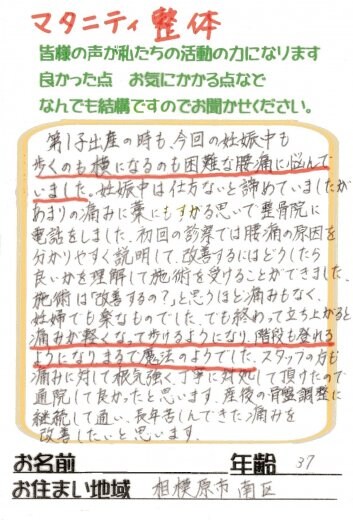 マタニティ整体
皆様の声が私たちの活動の力になります
良かった点　お気にかかる点など
なんでも結構ですのでお聞かせください。
第1子出産の時も、今回の妊娠中も
歩くのも横になるのも困難な腰痛に悩んで
いました。妊娠中は仕方ないと諦めていましたが
あまりの痛みに藁にもすがる思いで整骨院に
電話をしました。初回の診察では腰痛の原因を
分かりやすく説明して、改善するにはどうしたら
良いかを理解して施術を受けることができました。
施術は「改善するの？」と思うほど痛みもなく、
妊婦でも楽なものでした。でも終わって立ち上がると
痛みが軽くなって歩けるようになり、階段も登れる
ようになりまるで魔法のようでした。スタッフの方も
痛みに対して根気強く、丁寧に対処して頂けたので
通院して良かったと思います。産後の骨盤調整に
継続して通い、長年苦しんできた痛みを
改善したいと思います。
お名前　年齢 37
お住まい地域 相模原市南区